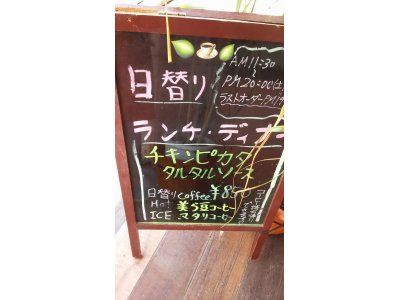 AM11:30
〜
日替り
PM20:00(土
ラストオーダーPM19
ランチ・ディナ
チキンピカタ
タルタルソース
日替りcoffee ¥850
Hot 美S豆コーヒー
ICE マタリコーヒー